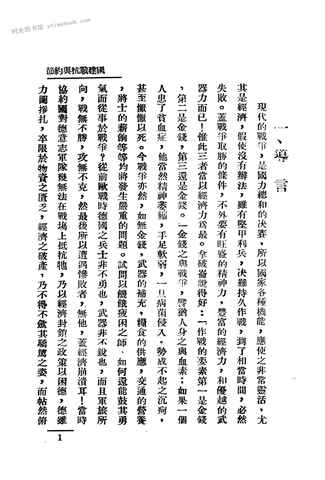 節約與抗戰建國
一、導言
現代的戰爭，是國力總和的決賽，所以國家各種機能，應使之非常靈活，尤
其是經濟，假使沒有辦法，雖有堅甲利兵，決難持久作戰，到了相當時間，必然
失敗。蓋戰爭取勝的條件，不外要有旺盛的精神力，豐富的經濟力，和優越的武
器力而已！惟此三者當以經濟力爲最。拿破崙說得好：「作戰的要素第一是金錢
，第二是金錢，第三還是金錢。」金錢之與戰爭，譬猶人身之與血素；如果一個
人患了貧血症，他當然精神萎極，手足軟弱，一旦病菌侵入，勢成不起之沉疴，
甚至懨懨以死。今戰爭亦然，如無金錢，武器的補充，糧食的供應，交通的營養
，將士的薪餉等等均將發生嚴重的問題。試問以饑餓疲困之師，如何還能鼓其勇
氣而從事於戰爭？從前歐戰時德國之兵士非不勇也，武器非不銳也，而且軍旅所
向，戰無不勝，攻無不克，然最後所以遭遇慘敗者，無他，蓋經濟崩潰耳！當時
協約國對德意志軍隊幾無法在戰場上抵抗牠，乃以經濟封鎖之政策以困德，德雖
力圖掙扎，卒限於物資之匱乏，經濟之破產，乃不得不斂其驕驁之姿，而帖然俯
1